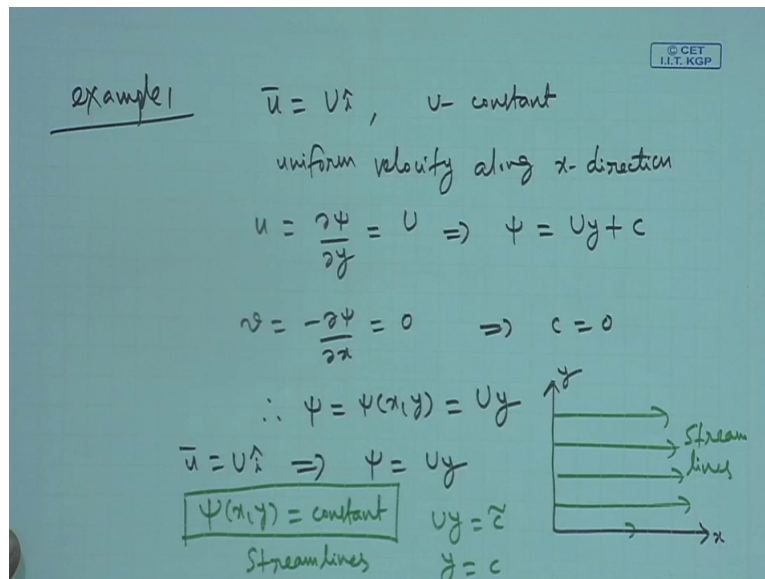 © CET
I.I.T. KGP
example 1
ū = Uî, U- constant
uniform velocity along x-direction
u = ∂ψ/∂y = U ⇒ ψ = Uy + c
v = -∂ψ/∂x = 0 ⇒ c = 0
∴ ψ = ψ(x,y) = Uy
ū = Uî ⇒ ψ = Uy
ψ(x,y) = constant
Streamlines
Uy = c̃
y = c
y
Stream
lines
x